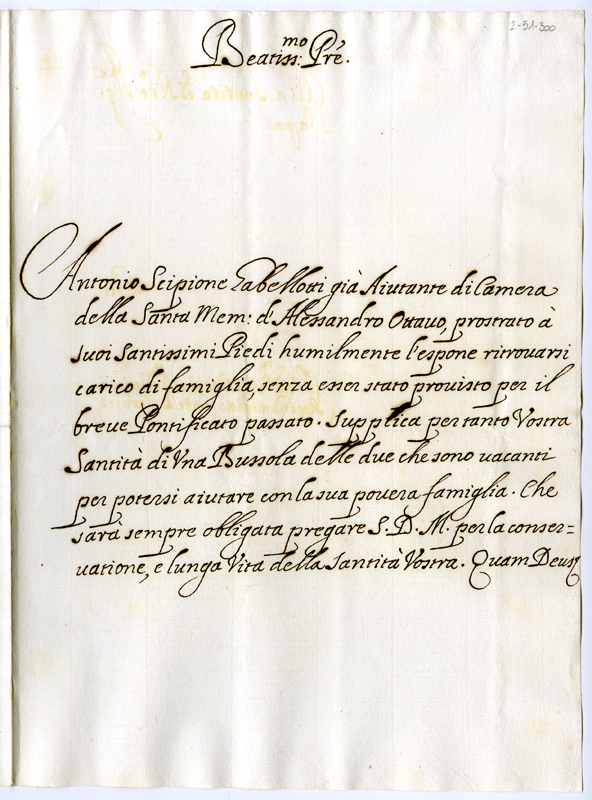 2-51-300
Beatiss:mo Prē.
Antonio Scipione Zabellotti già Aiutante di Camera
della Santa Mem: d'Alessandro Ottavo, prostrato à
suoi Santissimi Piedi humilmente l'espone ritrovarsi
carico di famiglia, senza esser stato provisto per il
breve Pontificato passato. Supplica per tanto Vostra
Santità di Vna Bussola delle due che sono vacanti
per potersi aiutare con la sua povera famiglia. Che
sarà sempre obligata pregare S. D. M. per la conser=
vatione, e lunga Vita della Santità Vostra. Quam Deus